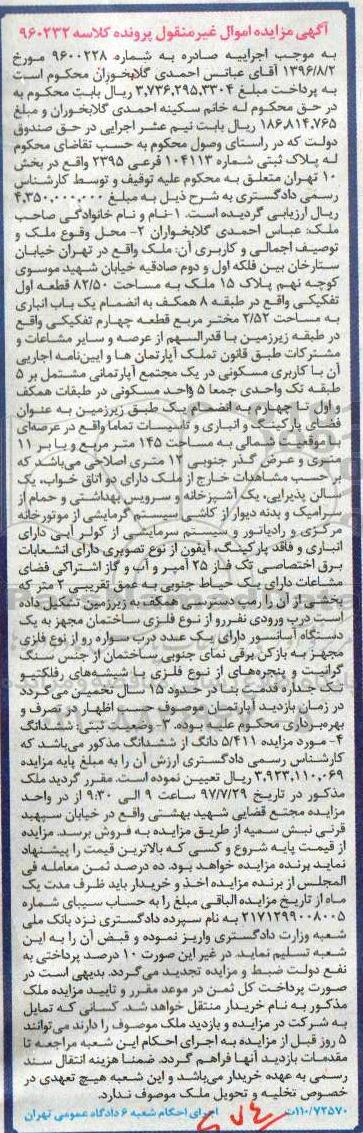 آگهی مزایده اموال غیرمنقول پرونده کلاسه ۹۶۰۲۳۲
به موجب اجراییه صادره به شماره ۹۶۰۰۲۲۸ مورخ
۱۳۹۶/۸/۲ آقای عباس احمدی گلابخوران محکوم است
به پرداخت مبلغ ۳,۷۳۶,۲۹۵,۳۳۰۴ ریال بابت محکوم به
در حق محکوم له خانم سکینه احمدی گلابخوران و مبلغ
۱۸۶,۸۱۴,۷۶۵ ریال بابت نیم عشر اجرایی در حق صندوق
دولت که در راستای وصول محکوم به حسب تقاضای محکوم
له پلاک ثبتی شماره ۱۰۴۱۱۳ فرعی ۲۳۹۵ واقع در بخش
۱۰ تهران متعلق به محکوم علیه توقیف و توسط کارشناس
رسمی دادگستری به شرح ذیل به مبلغ ۴,۳۵۰,۰۰۰,۰۰۰
ریال ارزیابی گردیده است. ۱-نام و نام خانوادگی صاحب
ملک: عباس احمدی گلابخواران ۲- محل وقوع ملک و
توصیف اجمالی و کاربری آن: ملک واقع در تهران خیابان
ستارخان بین فلکه اول و دوم صادقیه خیابان شهید موسوی
کوچه نهم پلاک ۱۵ ملک به مساحت ۸۲/۵۰ قطعه اول
تفکیکی واقع در طبقه ۸ همکف به انضمام یک باب انباری
به مساحت ۲/۵۲ مختر مربع قطعه چهارم تفکیکی واقع
در طبقه زیرزمین با قدرالسهم از عرصه و سایر مشاعات و
مشترکات طبق قانون تملک آپارتمان ها و آیین‌نامه اجاریی
آن با کاربری مسکونی در یک مجتمع آپارتمانی مشتمل بر ۵
طبقه تک واحدی جمعا ۵ واحد مسکونی در طبقات همکف
و اول تا چهارم به انضمام یک طبق زیرزمین به عنوان
فضای پارکینگ و انباری و تاسیسات تماما واقع در عرصه‌ای
با موقعیت شمالی به مساحت ۱۴۵ متر مربع و با بر ۱۱
متری و عرض گذر جنوبی ۱۲ متری اصلاحی می‌باشد که
بر حسب مشاهدات خارج از ملک دارای دو اتاق خواب، یک
سالن پذیرایی، یک آشپزخانه و سرویس بهداشتی و حمام از
سرامیک و بدنه دیوار از کاشی سیستم گرمایشی از موتورخانه
مرکزی و رادیاتور و سیستم سرمایشی از کولر آبی دارای
انباری و فاقد پارکینگ، آیفون از نوع تصویری دارای انشعابات
برق اختصاصی تک فاز ۲۵ آمپر و آب و گاز اشتراکی فضای
مشاعات دارای یک حیاط جنوبی به عمق تقریبی ۲ متر که
بخشی از آن را رمپ دسترسی همکف به زیرزمین تشکیل داده
است درب ورودی نفررو از نوع فلزی ساختمان مجهز به یک
دستگاه آسانسور دارای یک عدد درب سواره رو از نوع فلزی
مجهز به بازکن برقی نمای جنوبی ساختمان از جنس سنگ
گرانیت و پنجره‌های از نوع فلزی با شیشه‌های رفلکتیو
تک جداره قدمت بنا در حدود ۱۵ سال تخمین می‌گردد
در زمان بازدید آپارتمان موصوف حسب اظهار در تصرف و
بهره‌برداری محکوم علیه بوده. ۳- وضعیت ثبتی ششدانگ
۴- مورد مزایده ۵/۴۱۱ دانگ از ششدانگ مذکور می‌باشد که
کارشناس رسمی دادگستری ارزش آن را به مبلغ پایه مزایده
۳,۹۲۳,۱۱۰,۰۶۹ ریال تعیین نموده است. مقرر گردید ملک
مذکور در تاریخ ۹۷/۷/۲۹ ساعت ۹ الی ۹:۳۰ از در واحد
مزایده مجتمع قضایی شهید بهشتی واقع در خیابان سپهبد
قرنی نبش سمیه از طریق مزایده به فروش برسد. مزایده
از قیمت پایه شروع و کسی که بالاترین قیمت را پیشنهاد
نماید برنده مزایده خواهد بود. ده درصد ثمن معامله فی
المجلس از برنده مزایده اخذ و خریدار باید ظرف مدت یک
ماه از تاریخ مزایده الباقی مبلغ را به حساب سیبای شماره
۲۱۷۱۲۹۹۰۰۸۰۰۵ به نام سپرده دادگستری نزد بانک ملی
شعبه وزارت دادگستری واریز نموده و قبض آن را به این
شعبه تسلیم نماید. در غیر این صورت ۱۰ درصد پرداختی به
نفع دولت ضبط و مزایده تجدید می‌گردد. بدیهی است در
صورت پرداخت کل ثمن در موعد مقرر و تایید مزایده ملک
مذکور به نام خریدار منتقل خواهد شد. کسانی که تمایل
به شرکت در مزایده و بازدید ملک موصوف را دارند می‌توانند
۵ روز قبل از مزایده به اجرای احکام این شعبه مراجعه تا
مقدمات بازدید آنها فراهم گردد. ضمنا هزینه انتقال سند
رسمی به عهده خریدار می‌باشد و این شعبه هیچ تعهدی در
خصوص تخلیه و تحویل ملک موصوف ندارد.
۱۱۰/۷۲۵۷۰ت اجرای احکام شعبه ۶ دادگاه عمومی تهران